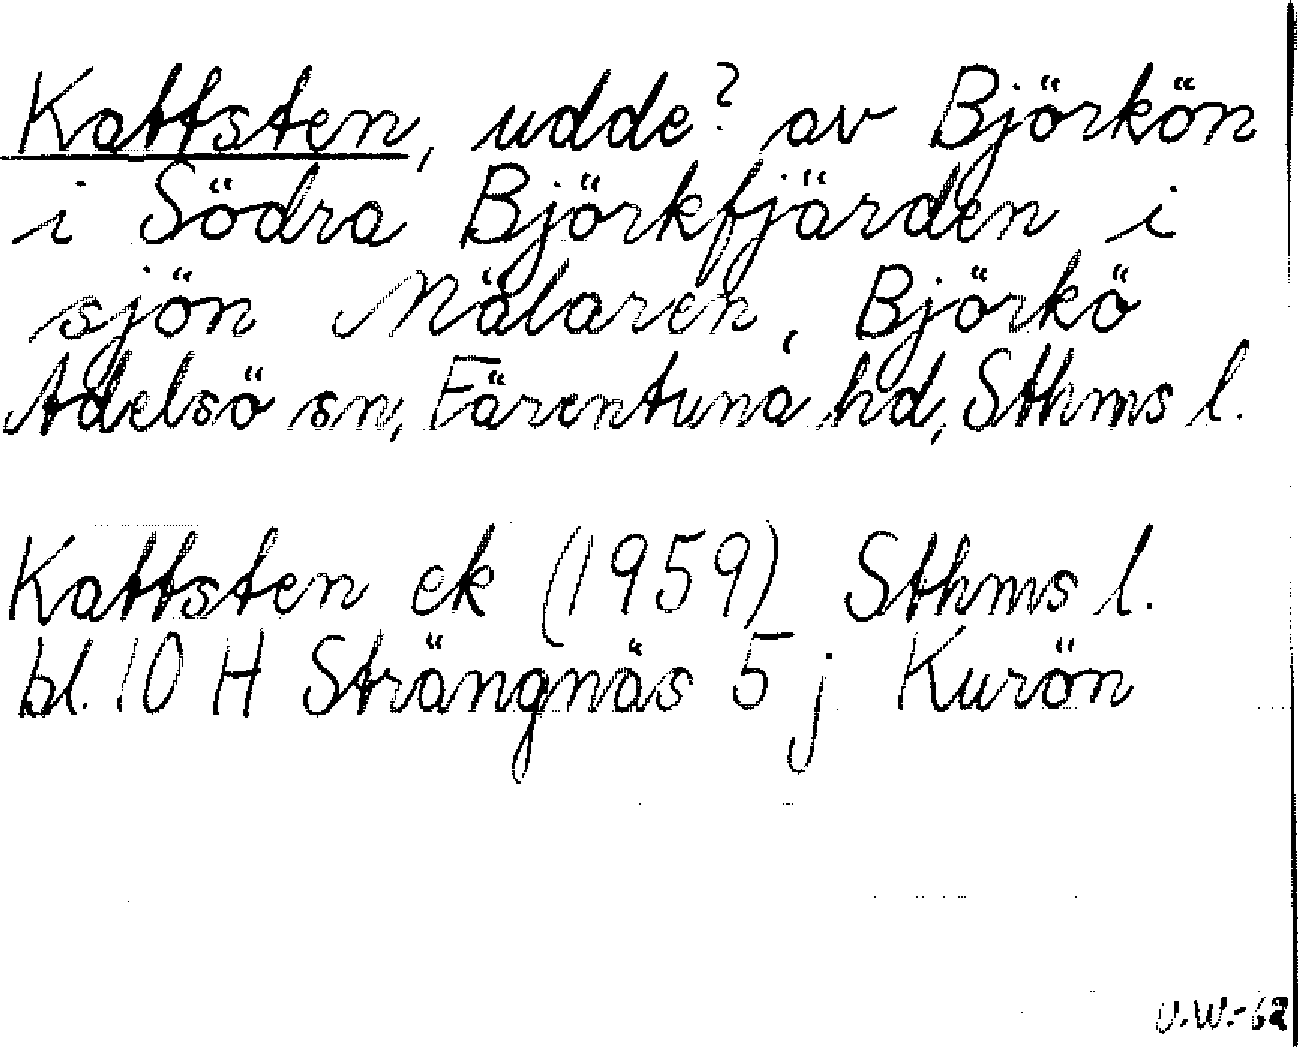 Kattsten, udde? av Björkön
i Södra Björkfjärden i
sjön Mälaren, Björkö
Adelsö sn, Färentuna hd, Sthms l.
Kattsten ek (1959) Sthms l.
bl. 10 H Strängnäs 5 j Kurön
U.W.-62